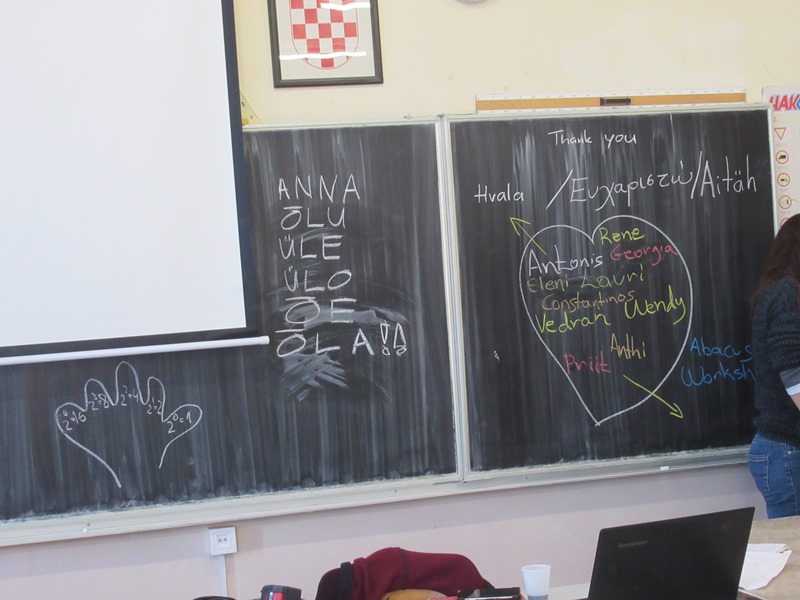 ANNA
ÕLU
ÜLE
ÜLO
ÕE
ÕLA!!
2⁴=16 2³=8 2²=4 2¹=2 2⁰=1
Thank you
Hvala / Ευχαριστώ / Aitäh
Rene
Antonis Georgia
Eleni Lauri
Constantinos
Vedran Wendy
Anthi
Priit
Abacus
Worksh
HAK
lenovo